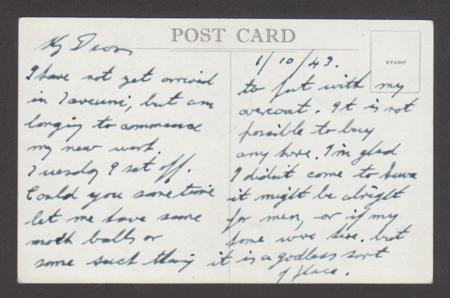 POST CARD
STAMP
My Dear
I have not yet arrived
in Taveuni, but am
longing to commence
my new work.
Tuesday I set off.
Could you sometime
let me have some
moth balls or
some such thing
1/10/43.
to put with my
overcoat. It is not
possible to buy
any here. I'm glad
I didn't come to Suva
it might be alright
for men, or if my
home were here. but
it is a godless sort
of place.